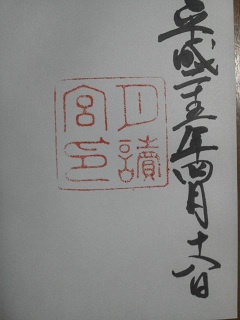 平成二十五年四月十八日
月讀
宮印